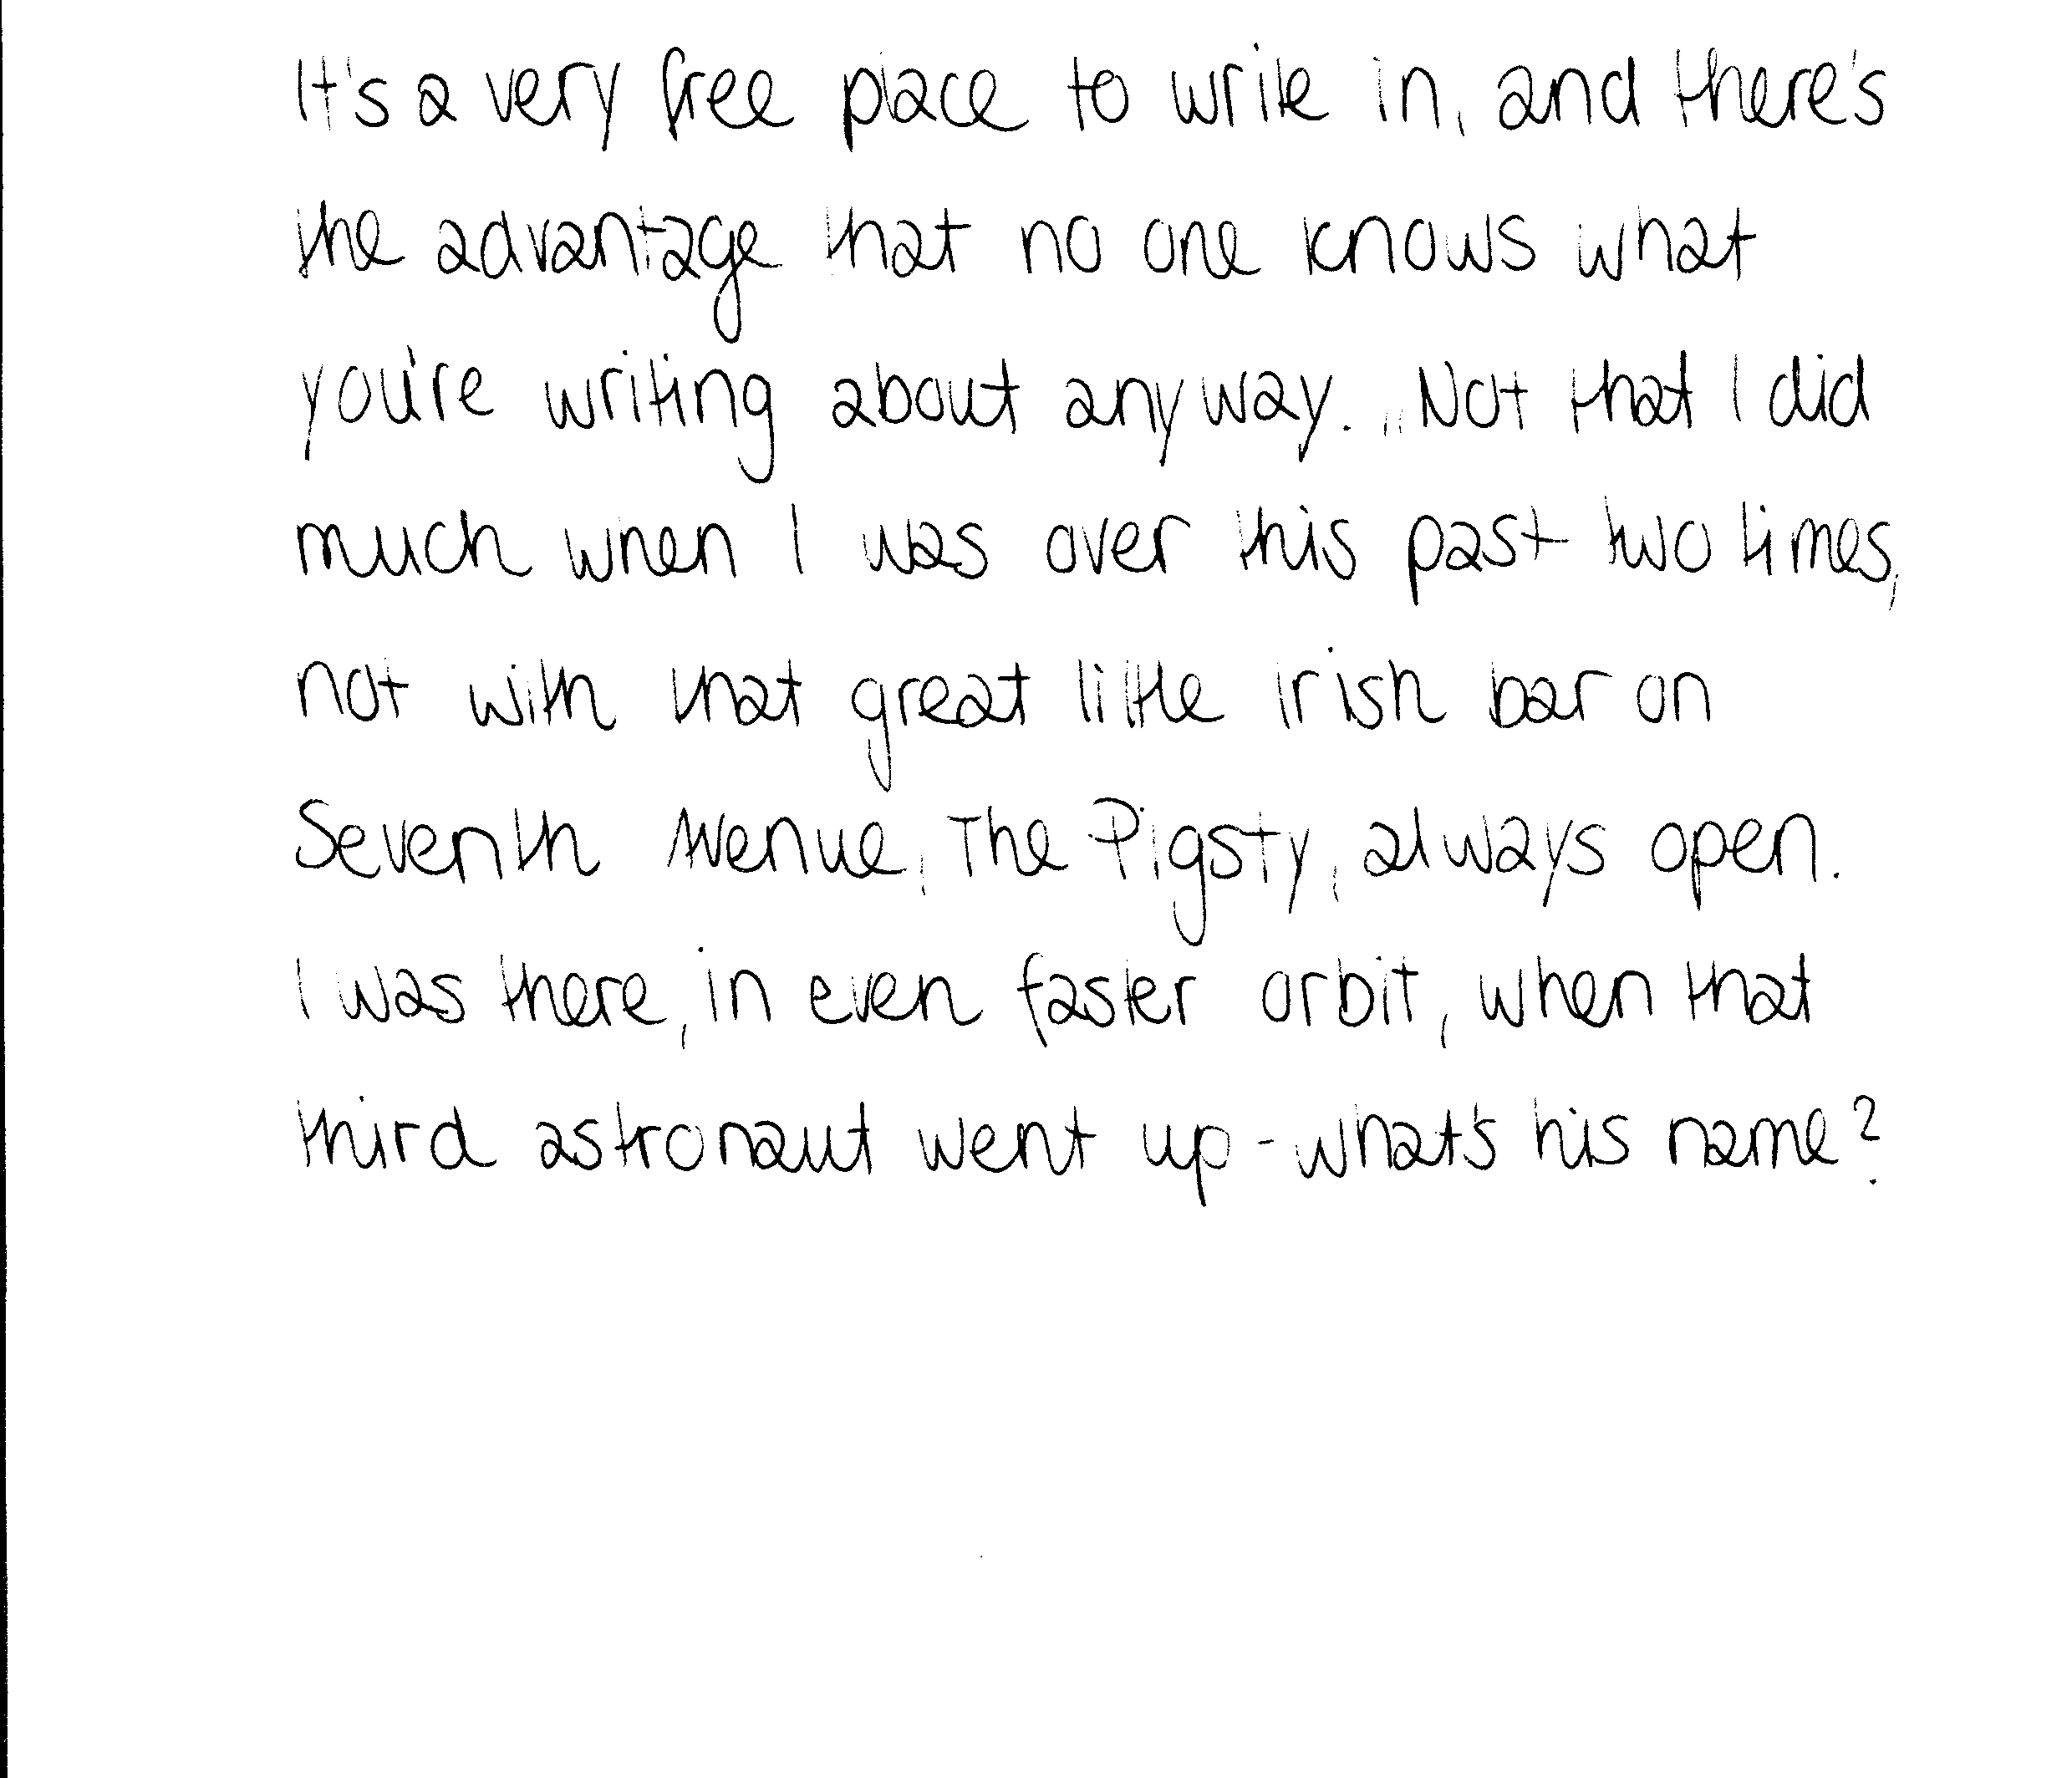 It's a very free place to write in, and there's
the advantage that no one knows what
you're writing about anyway. "Not that I did
much when I was over this past two times,
not with that great little Irish bar on
Seventh Avenue, The Pigsty, always open.
I was there, in even faster orbit, when that
third astronaut went up - what's his name?